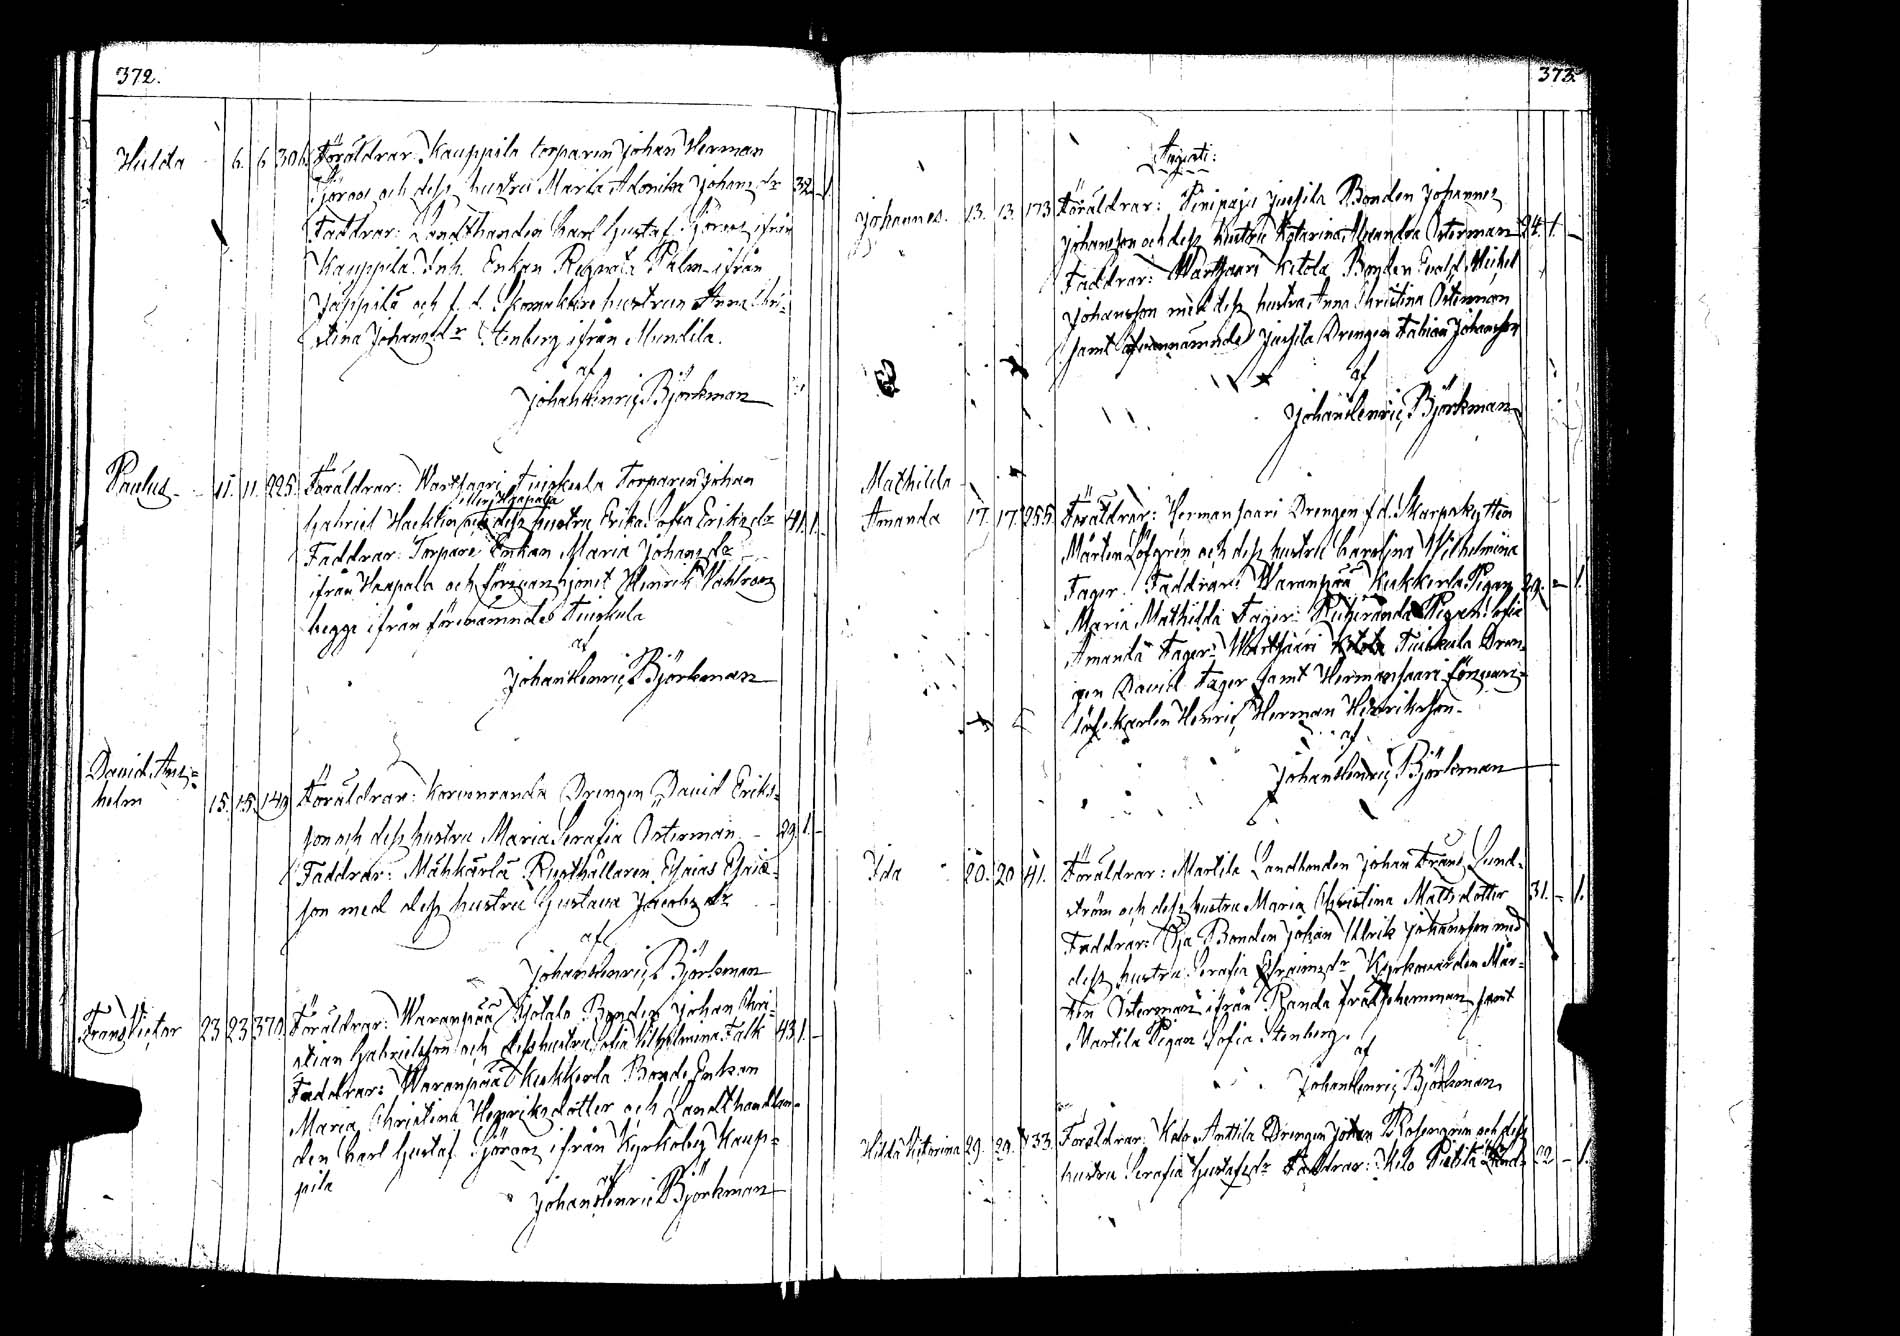 372.
Hulda 6. 6 306. Föräldrar: Kauppila torparen Johan Herman
Sjöroos och dess hustru Maria Adonika Johansdr 32 - 1.
Faddrar: Landthandln Carl Gustaf Sjöroos ifrån
Kauppila. Inh. Enkan Regnata Palm ifrån
Jäppilä och f. d. Skomakare hustrun Anna Chri-
stina Johansdr Stenberg ifrån Mundila.
af
Johan Henric Björkman
Paulus - 11. 11. 225. Föräldrar: Wartsaari Tuiskula Torparen Johan
eller Haapala
Gabriel Hacklin och dess hustru Erika Sofia Eriksdr 41. 1.
Faddrar: Torpare Enkan Maria Johansdr
ifrån Haapala och Henrik Vahlroos
begge ifrån förenämnde Tuiskula
af
Johan Henric Björkman
David Ans=
helm 15. 15. 149 Föräldrar: Korvenranda Drengen David Eriks-
son och dess hustru Maria Serafia Österman - 29. 1. -
Faddrar: Mähkärlä Rusthållaren Esaias Esaia-
son med dess hustru Gustava Jacobsdr
af
Johan Henric Björkman
Frans Victor 23 23 370 Föräldrar: Waranpää Bonden Johan Chri-
stian Gabrielsson och dess hustru Sofia Vilhelmina Falk 43 1. -
Faddrar: Waranpää Kukkerla Bonde Enkan
Maria Christina Henriksdotter och Landthandlan-
den Carl Gustaf Sjöroos ifrån Kyrkoby Kaup=
pila af
Johan Henric Björkman
373.
Augusti:
Johannes. 13. 13. 173 Föräldrar: Pinipaju Jussila Bonden Johannes
Johansson och dess hustru Katarina Alexandra Österman 24. 1. -
Faddrar: Wartsaari Ketola Bonden Evald Michel
Johansson med dess hustru Anna Christina Österman
samt ofvannämnde Jussila Drengen Fabian Johansson
af
Johan Henric Björkman
Mathilda
Amanda 17. 17. 255. Föräldrar: Hermansaari Drengen f. d. Skarpskytten
Mårten Löfgrén och dess hustru Carolina Wilhelmina
Fager. Faddrar: Waranpää Kukkerla Pigan 29. - 1.
Maria Mathilda Fager. Pigan Sofia
Amanda Fager. Wartsaari Tuiskula Dren-
gen David Fager samt Hermansaari
karlen Henric Herman Henriksson.
af
Johan Henric Björkman
Ida 20. 20 41. Föräldrar: Martila Landbonden Johan Frans Lund-
ström och dess hustru Maria Christina Mattsdotter 31. - 1.
Faddrar: Oja Bonden Johan Ulrik Johansson med
dess hustru Serafia Efraimsdr Kyrkovärden Mår-
ten Österman ifrån Randa frälsehemman samt
Martila Pigan Sofia Stenberg.
af
Johan Henric Björkman
Hilda Victorina 29. 29. 133. Föräldrar: Kolo Anttila Drengen Johan Rosengrén och dess
hustru Serafia Gustafsdr Faddrar: Kolo 22 - 1.